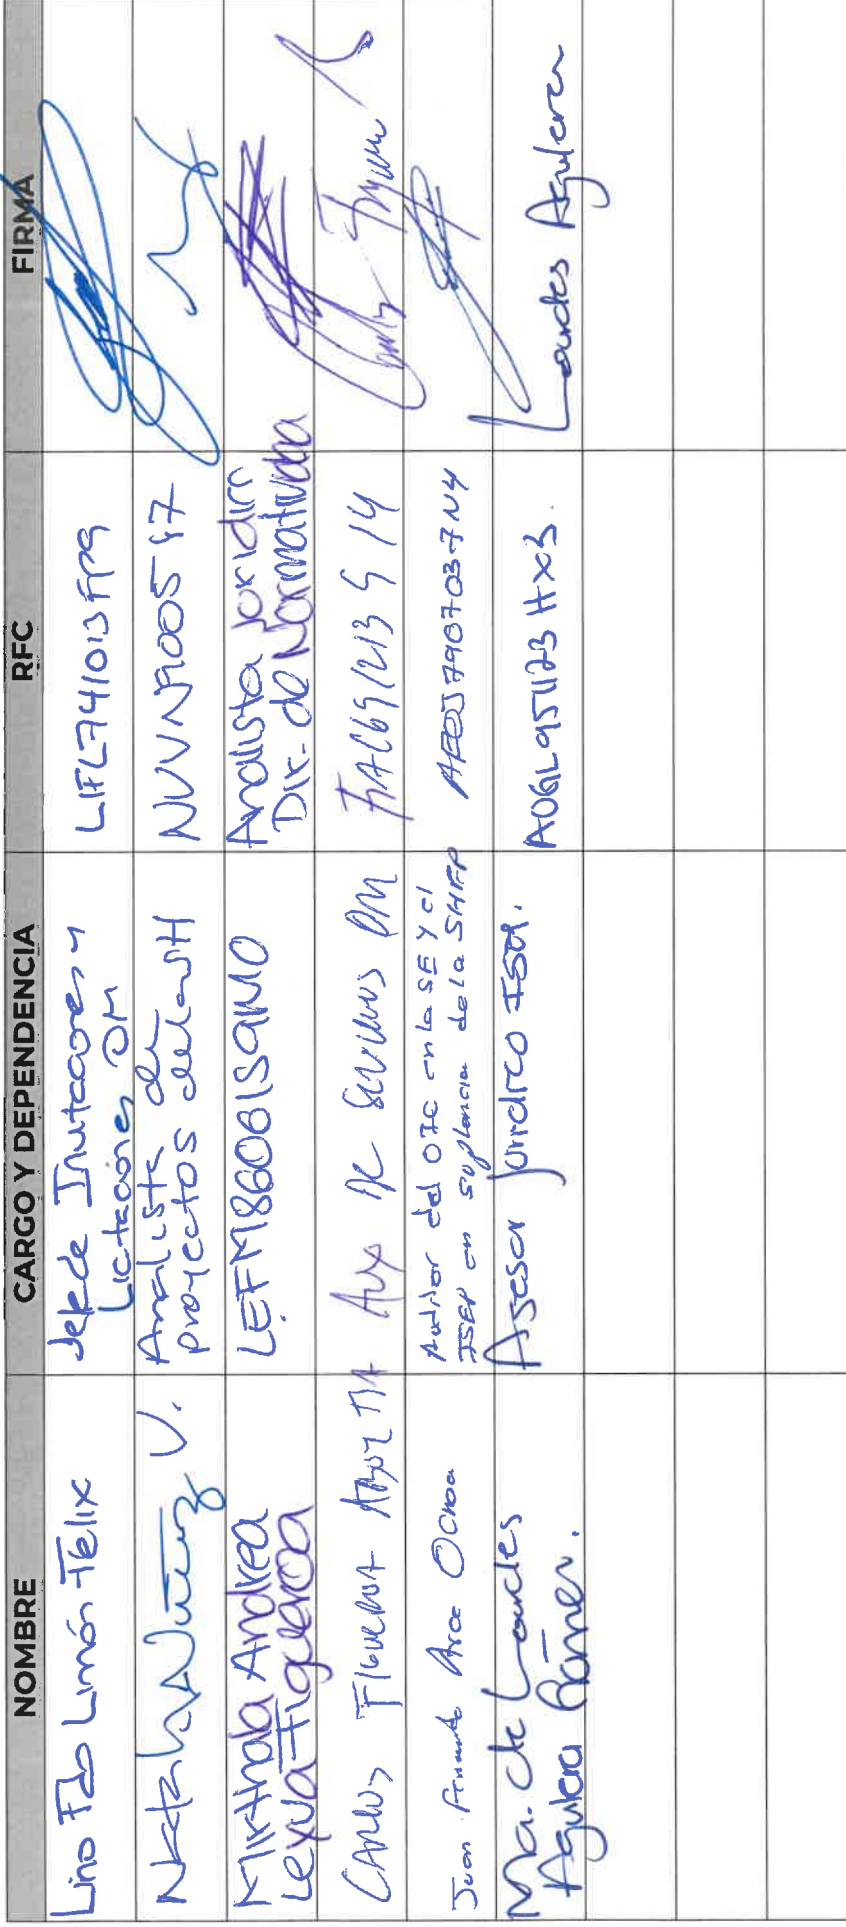 NOMBRE CARGO Y DEPENDENCIA RFC FIRMA
Lino Fdo Limón Félix
Jefe de Invitaciones y
Licitaciones OM
LIFL741013FP9
Natalia Núñez V.
Analista de
proyectos de la
Mirthala Andrea
Leyva Figueroa
LEFM860615
Analista Jurídico
Dir. de Normatividad
Carlos Figueroa
Aux de Servicios OM
Juan Fernando Arce Ochoa
Auditor del OIC en la SE Y el
ISEP en suplencia de la SHFP
AEOJ7907037N4
Ma. de Lourdes
Aguilera Gámez.
Asesor Jurídico ISM.
AUGL951123HX3.
Lourdes Aguilera